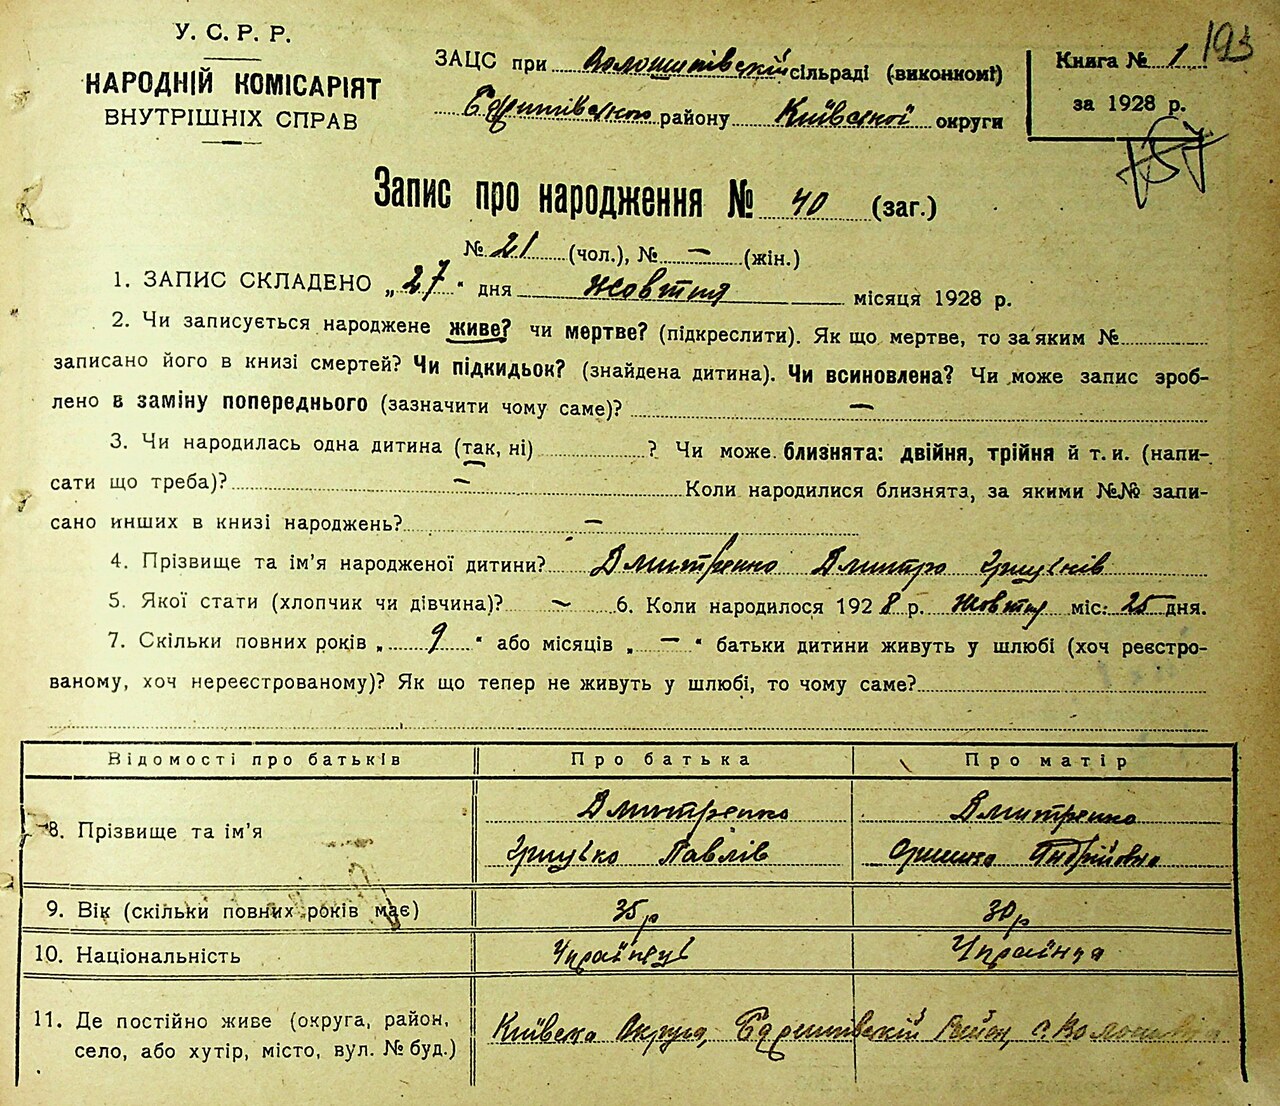 У. С. Р. Р.
НАРОДНІЙ КОМІСАРІЯТ
ВНУТРІШНІХ СПРАВ
ЗАЦС при Волошинівскій сільраді (виконкомі)
району Київської округи
Книга № 1
за 1928 р.
193
Запис про народження № 40 (заг.)
№ 21 (чол.), № — (жін.)
1. ЗАПИС СКЛАДЕНО „27“ дня Жовтня місяця 1928 р.
2. Чи записується народжене живе? чи мертве? (підкреслити). Як що мертве, то за яким №
записано його в книзі смертей? Чи підкидьок? (знайдена дитина). Чи всиновлена? Чи може запис зроб-
лено в заміну попереднього (зазначити чому саме)? —
3. Чи народилась одна дитина (так, ні) ? Чи може близнята: двійня, трійня й т. и. (напи-
сати що треба)? — Коли народилися близнята, за якими №№ запи-
сано инших в книзі народжень? —
4. Прізвище та ім’я народженої дитини? Дмитренко Дмитро Грицьків
5. Якої стати (хлопчик чи дівчина)? — 6. Коли народилося 1928 р. Жовтня міс. 25 дня.
7. Скільки повних років „9“ або місяців „—“ батьки дитини живуть у шлюбі (хоч реєстро-
ваному, хоч нереєстрованому)? Як що тепер не живуть у шлюбі, то чому саме?
Відомості про батьків Про батька Про матір
8. Прізвище та ім’я Дмитренко Дмитренко
Грицько Павлів Оришка Андрійовна
9. Вік (скільки повних років має) 35р 30р
10. Національність Українець Українка
11. Де постійно живе (округа, район,
село, або хутір, місто, вул. № буд.)
Київска Округа, Район, с.